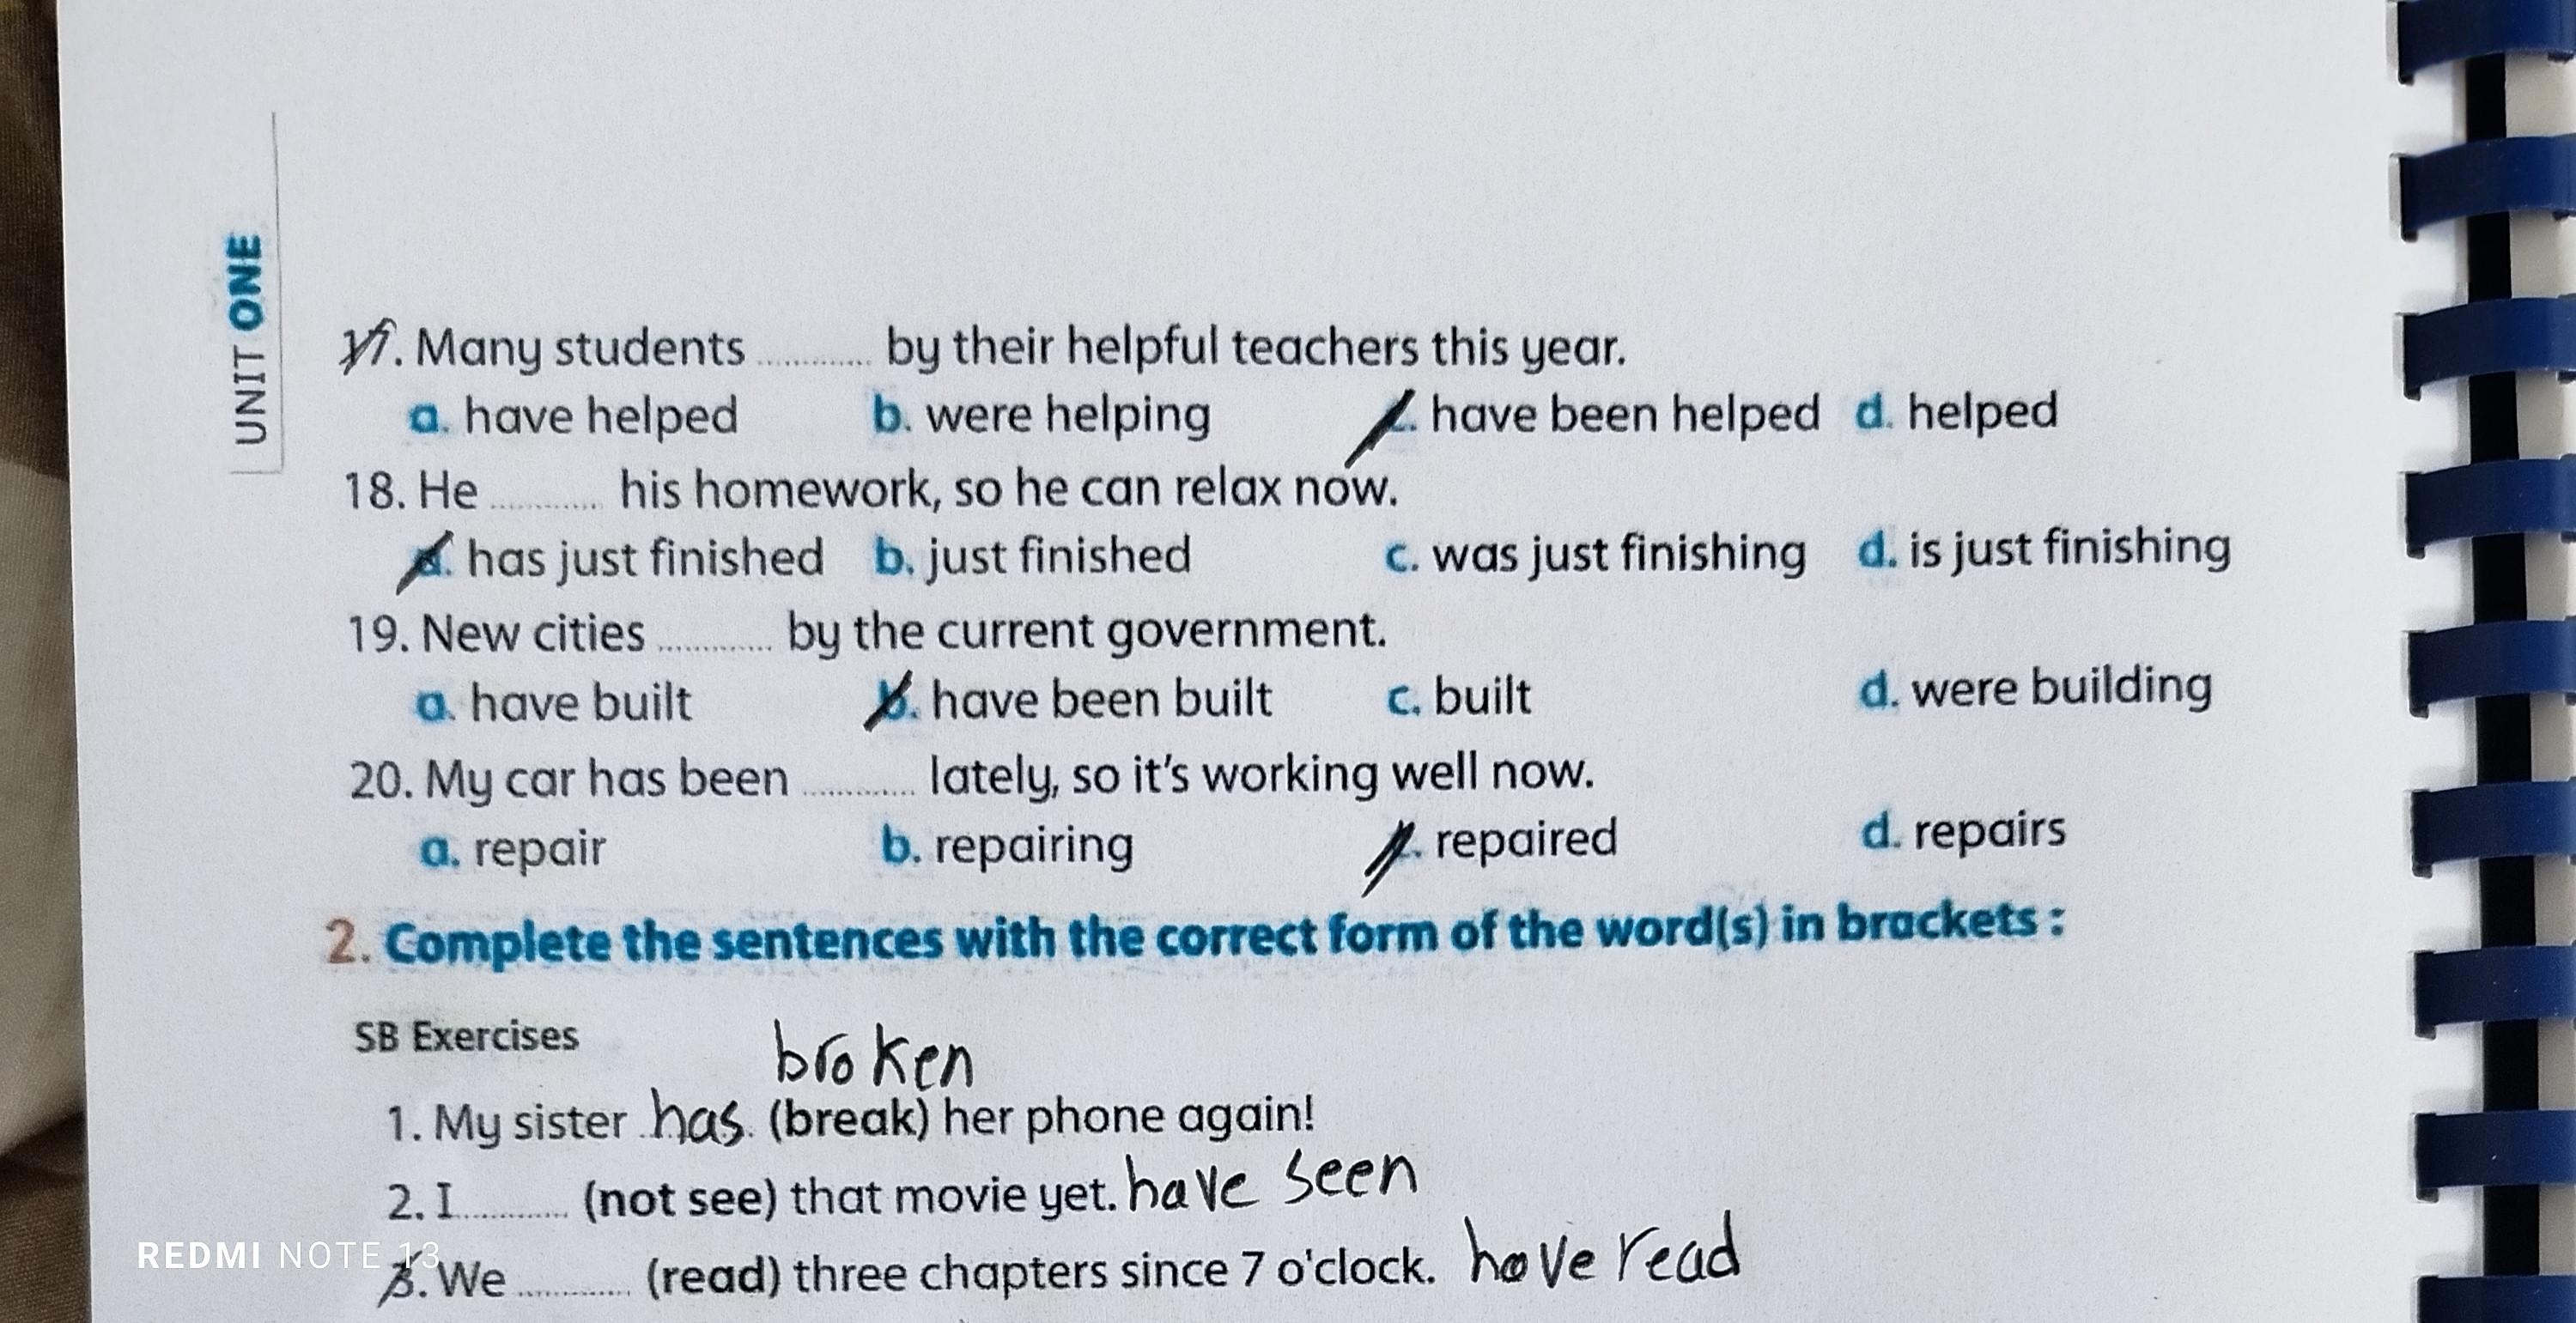 UNIT ONE
17. Many students ............ by their helpful teachers this year.
a. have helped b. were helping c. have been helped d. helped
18. He ............ his homework, so he can relax now.
a. has just finished b. just finished c. was just finishing d. is just finishing
19. New cities ............ by the current government.
a. have built b. have been built c. built d. were building
20. My car has been ............ lately, so it's working well now.
a. repair b. repairing c. repaired d. repairs
2. Complete the sentences with the correct form of the word(s) in brackets :
SB Exercises
broken
1. My sister has (break) her phone again!
2. I ............ (not see) that movie yet. have seen
3. We ............ (read) three chapters since 7 o'clock. have read
REDMI NOTE 13